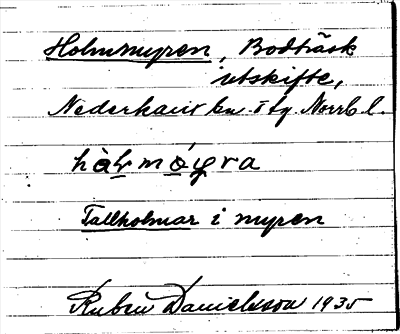 Holmmyren, Bodträsk
utskifte,
Nederkalix kn. i ty. Norrb. l.
Tallholmar i myren
Ruben Danielsson 1935